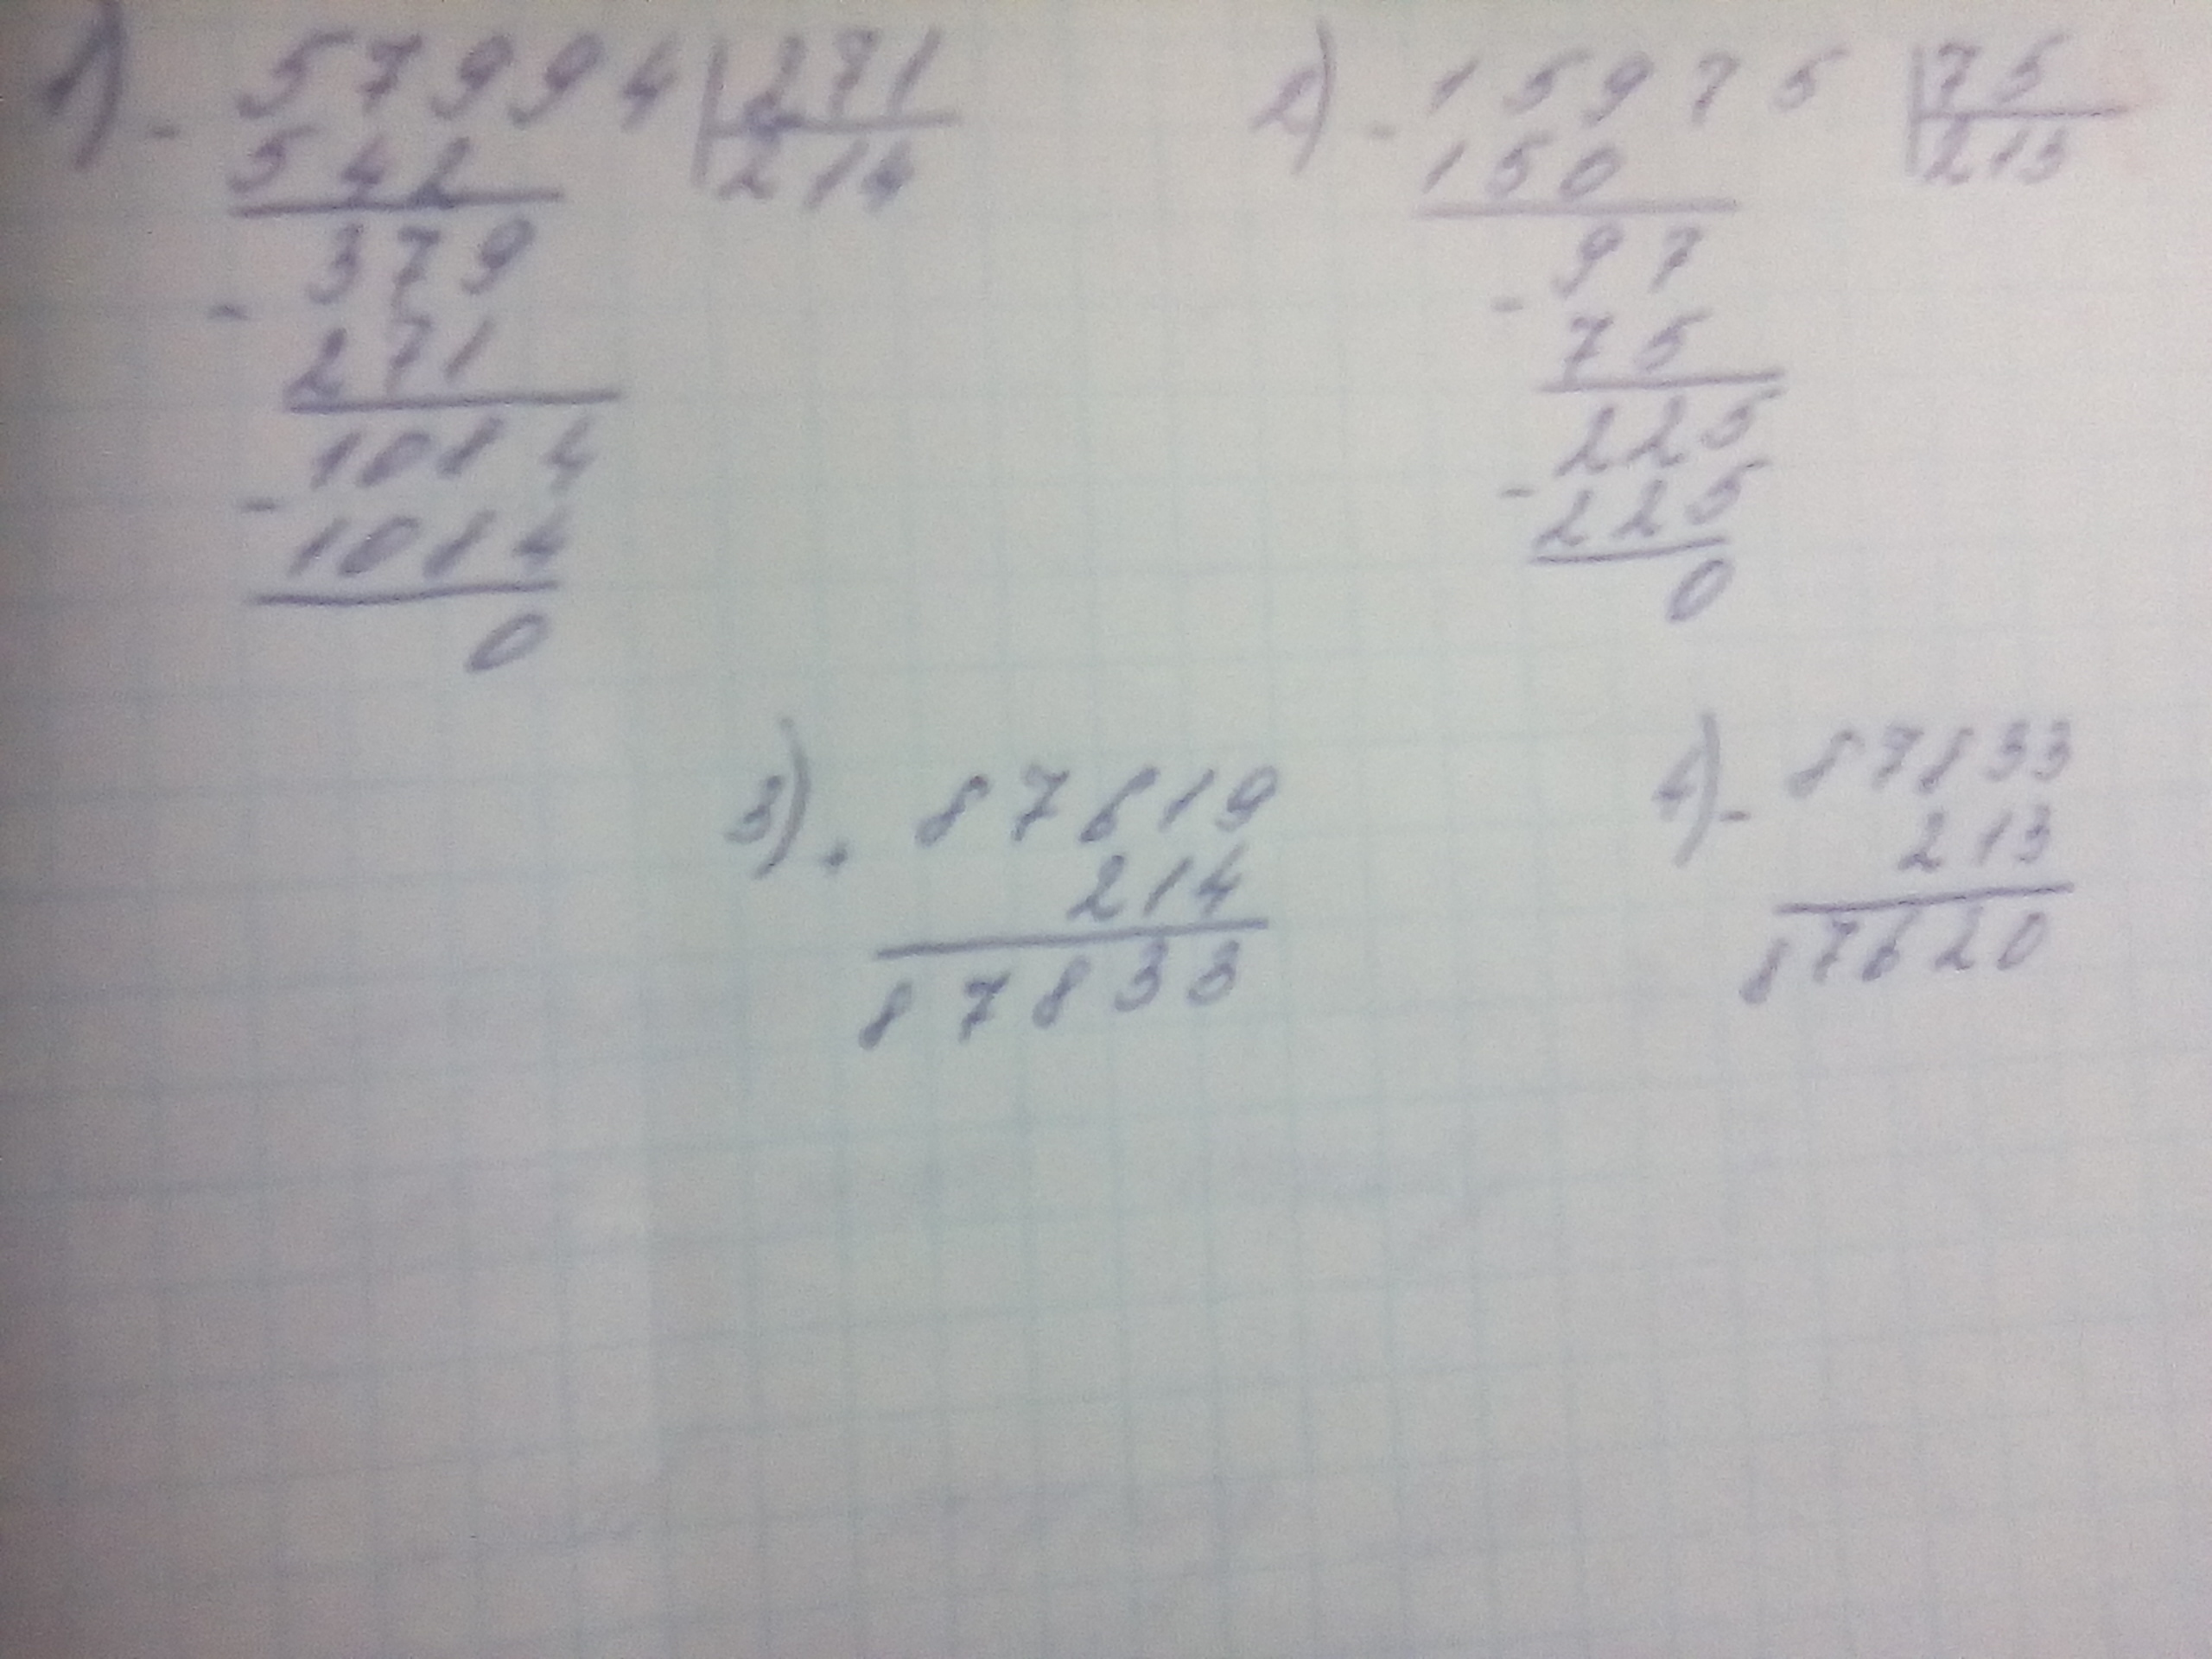 1) - 57994 | 271
542 | 214
- 379
271
- 1084
1084
0
2) - 15975 | 75
150 | 213
- 97
75
- 225
225
0
3) + 87619
214
87833
4) - 87833
213
87620